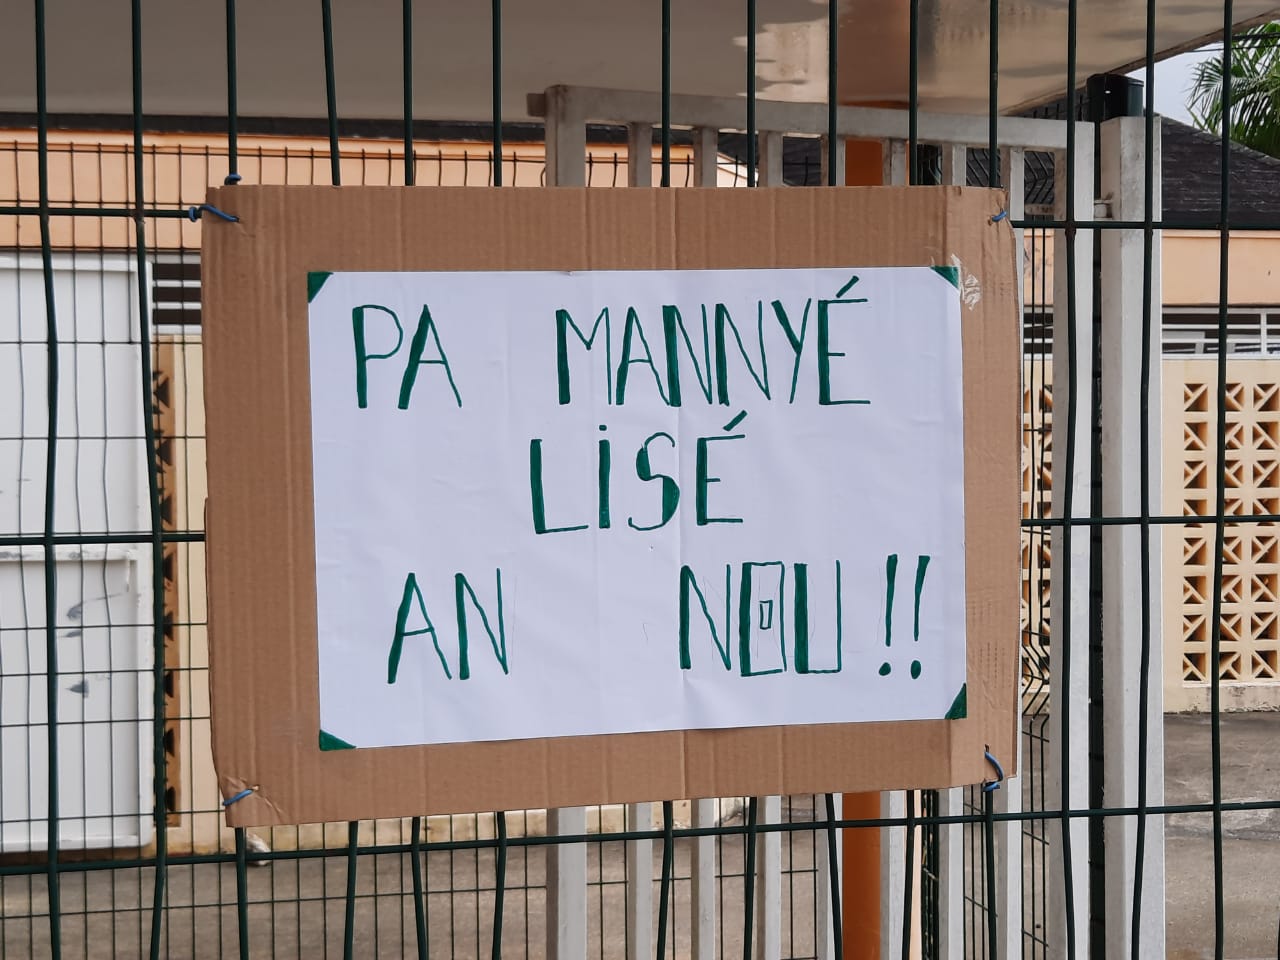 PA MANNYÉ
LiSÉ
AN NOU!!